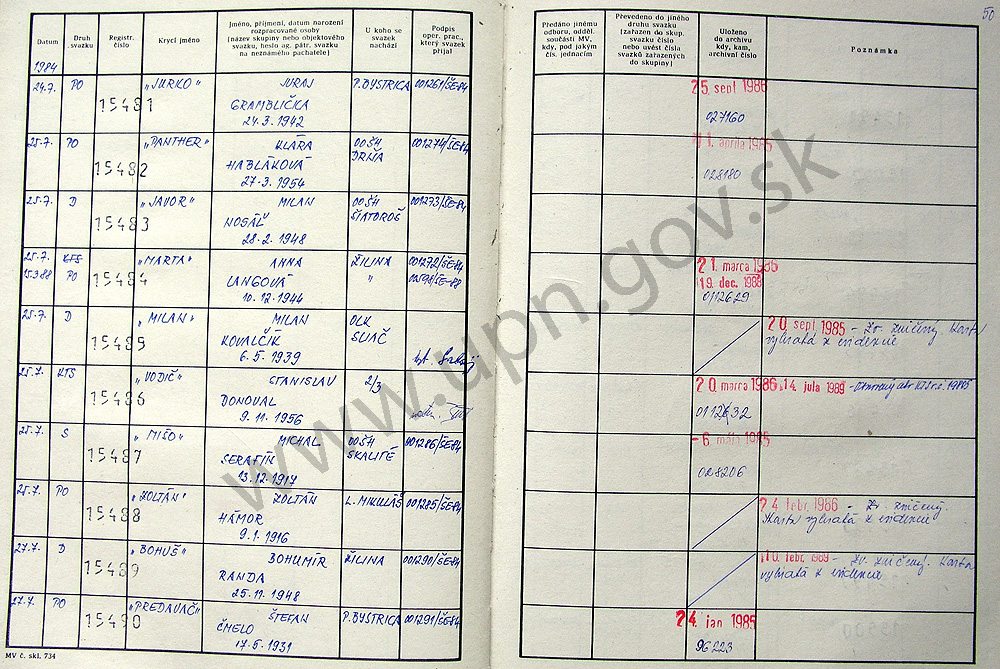 50
Datum
Druh svazku
Registr. číslo
Krycí jméno
Jméno, příjmení, datum narození
rozpracované osoby
(název skupiny nebo objektového
svazku, heslo ag. pátr. svazku
na neznámého pachatele)
U koho se
svazek
nachází
Podpis
oper. prac.,
který svazek
přijal
Předáno jinému
odboru, odděl.
součásti MV,
kdy, pod jakým
čís. jednacím
Převedeno do jiného
druhu svazku
(zařazen do skup.
svazku číslo
nebo uvést čísla
svazků zařazených
do skupiny)
Uloženo
do archivu
kdy, kam,
archivní číslo
Poznámka
1984
24.7. PO 15481 „JURKO" JURAJ P.BYSTRICA 001261/ŠE-84 25. sept 1986
GRAMBLIČKA
24.3.1942 027160
25.7. PO 15482 „PANTHER" KLÁRA OOŠH 001274/ŠE-84 1. apríla 1985
HABLÁKOVÁ DRŇA
27.3.1954 028180
25.7. D 15483 „JAVOR" MILAN OOŠH 001273/ŠE-84
NOSÁĽ ŠIATOROŠ
28.2.1948
25.7. KTS 15484 „MARTA" ANNA ŽILINA 001272/ŠE-84 21. marca 1986
15.3.88 PO LANGOVÁ " /ŠE-88 19. dec. 1988
10.12.1944 0112629
25.7. D 15485 „MILAN" MILAN OLK 20. sept 1985 - Zv. zničený. Karta
KOVALČÍK SLIAČ vybratá z evidencie
6.5.1939
25.7. KTS 15486 „VODIČ" STANISLAV 2/3 20. marca 1986, 14. júla 1989
DONOVAL
9.11.1956 0112632
25.7. S 15487 „MIŠO" MICHAL OOŠH 001286/ŠE-84 -6. mája 1985
SERAFÍN SKALITÉ
13.12.1917 028206
25.7. PO 15488 „ZOLTÁN" ZOLTÁN L.MIKULÁŠ 001285/ŠE-84 24. febr. 1986 - Zv. zničený.
HÁMOR Karta vybratá z evidencie
9.1.1916
27.7. D 15489 „BOHUŠ" BOHUMÍR ŽILINA 001290/ŠE-84 10. febr. 1989 - Zv. zničený. Karta
RANDA vybratá z evidencie
25.11.1948
27.7. PO 15490 „PREDAVAČ" ŠTEFAN P.BYSTRICA 001291/ŠE-84 24. jan 1985
ČMELO
17.5.1931 96223
MV č. skl. 734
www.upn.gov.sk